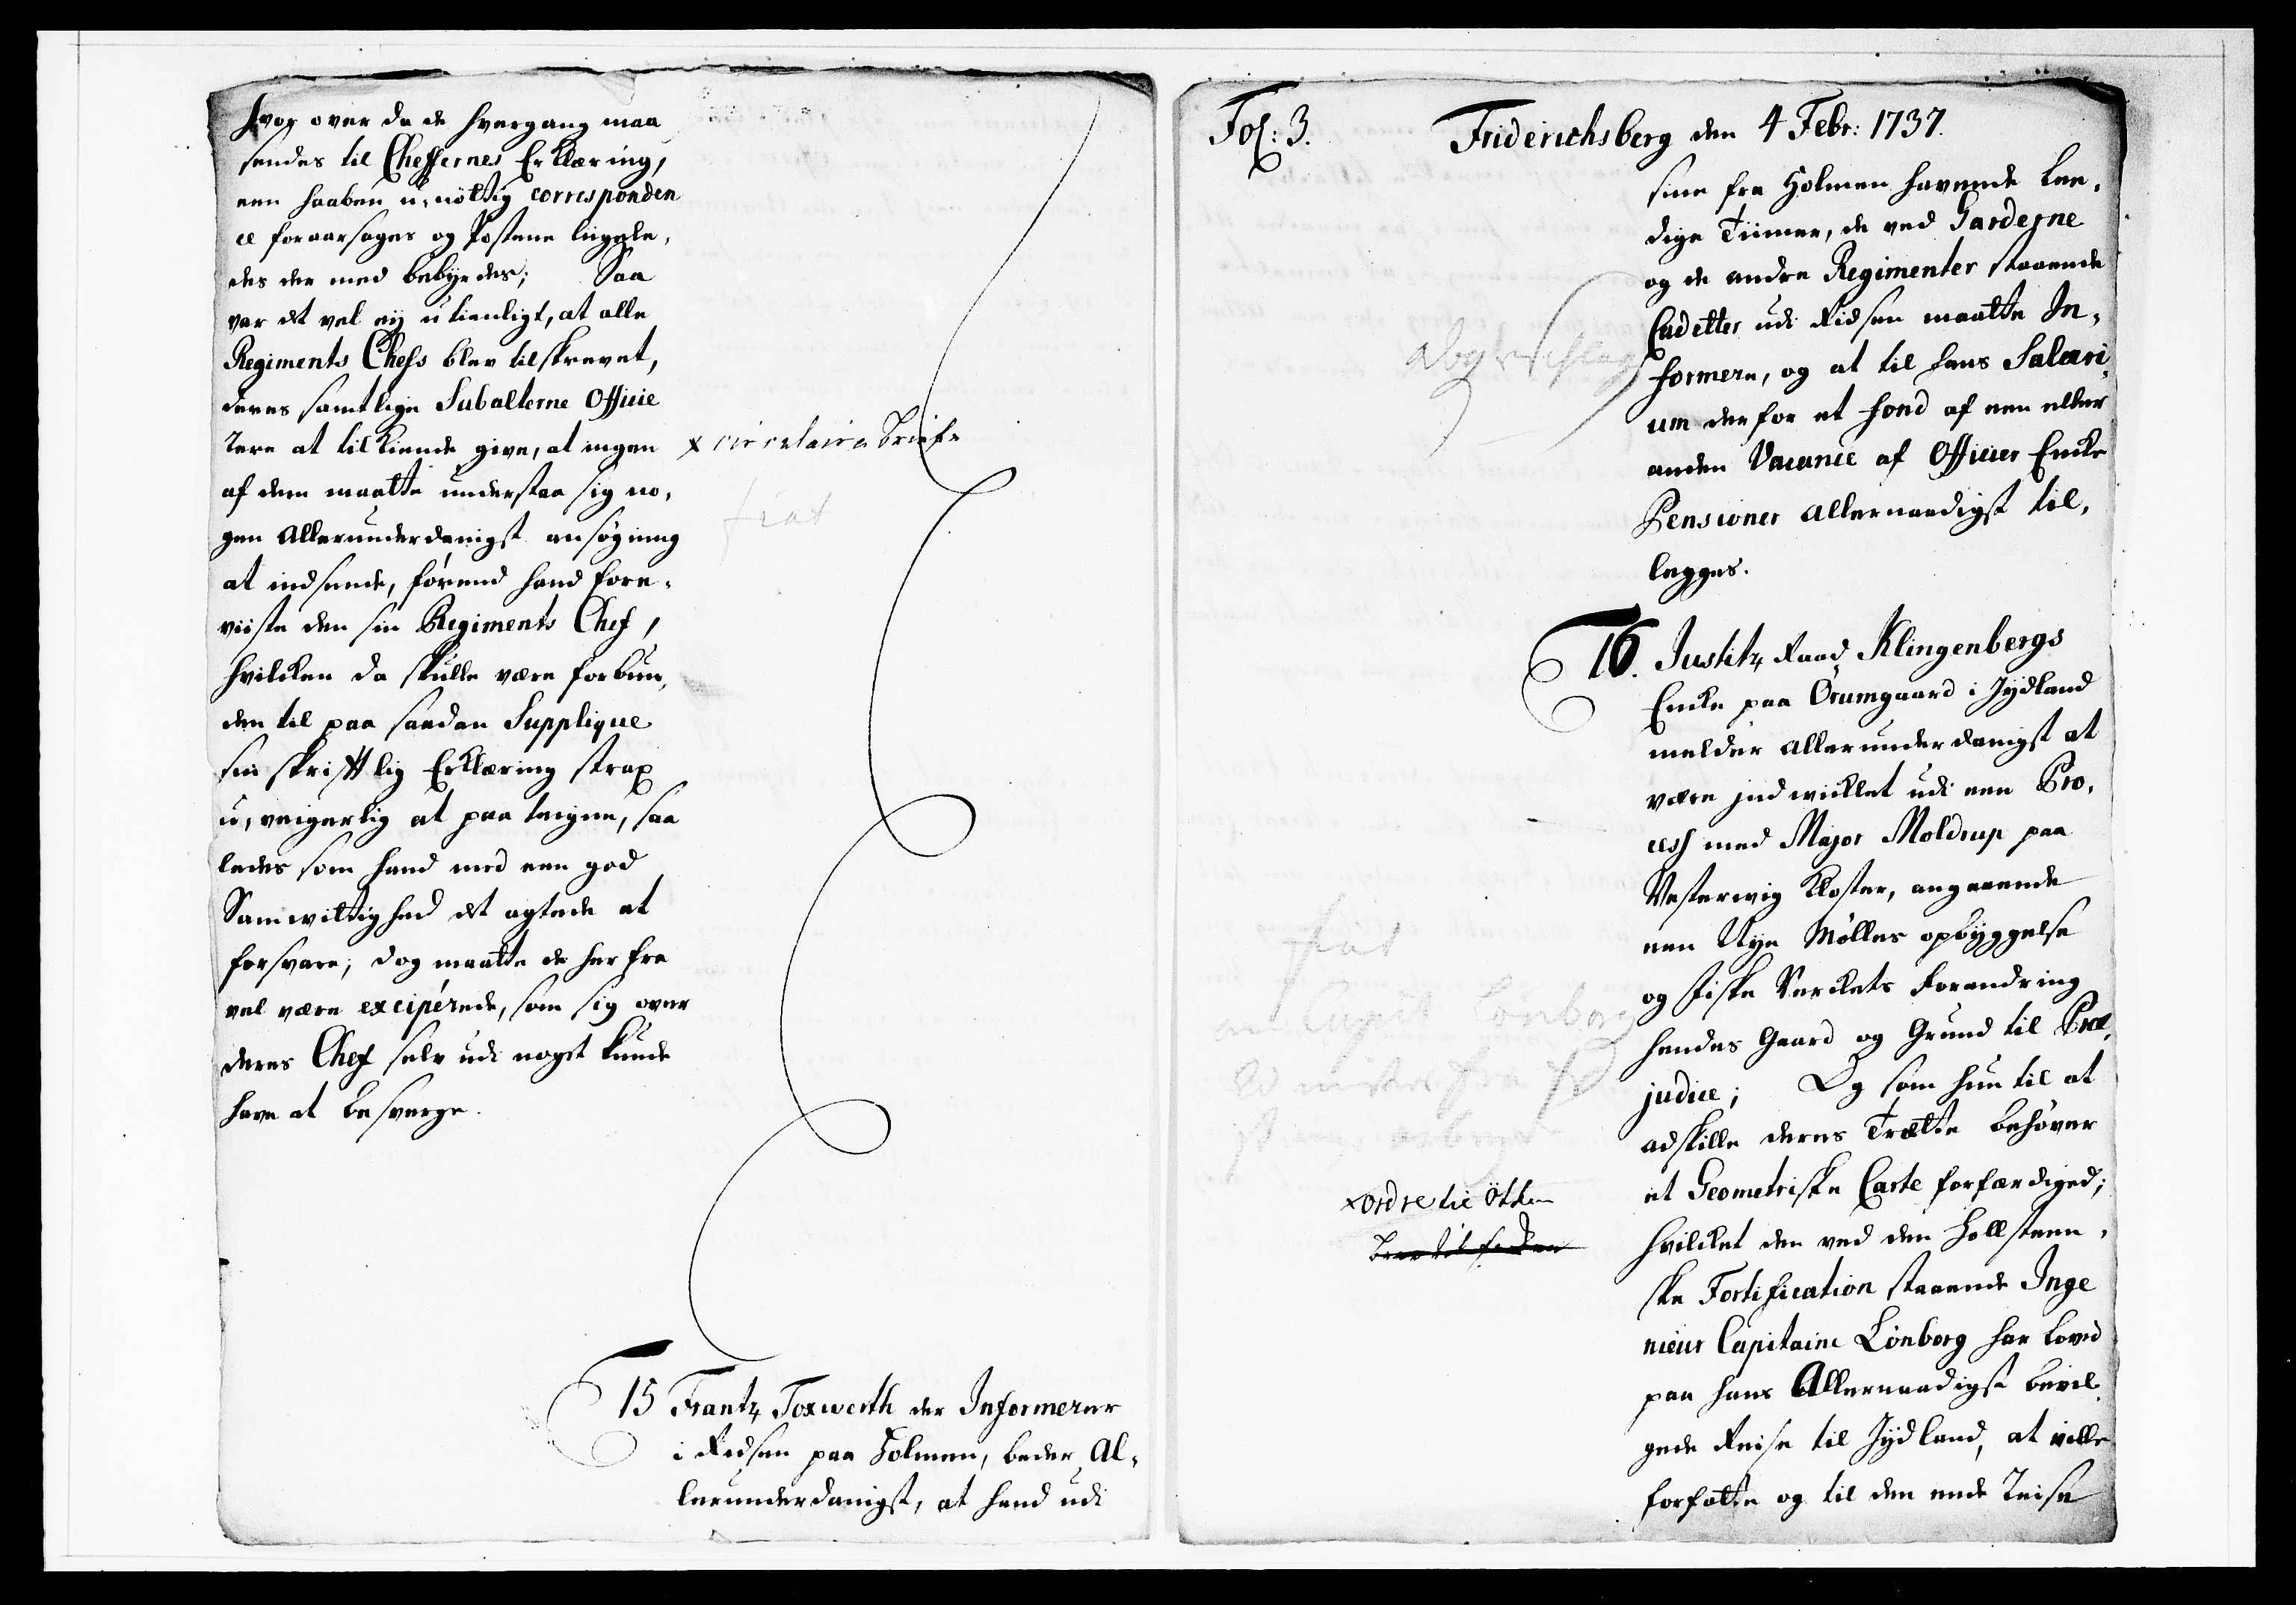 hvor over da de hvergang maa
sendes til Cheffernes Erklæring,
een haaben u-nöttig corresponden
ce foraarsages og Postene liigele,
des der med bebyrdes; Saa
var det vel eij utienligt, at alle
Regiments Chefs blev tilskrevet,
deres samtlige Subalterne Officie
rere at tilkiende give, at ingen
x circulaire Briefe
af dem maatte understaa sig no,
fiat
gen Allerunderdanigst ansøgning
at indsende, förend hand fore,
viiste den sin Regiments Chef,
hvilcken da skulle være forbun,
den til paa saadan Supplique
sin skriftlig Erklæring strax
u,veigerlig at paa teigne, saa
ledes som hand med een god
Samwittighed det agtede at
forsvare; dog maatte de her fra
vel være exciperede, som sig over
deres Chef selv udi noget kunde
have at besverge.
15 Frantz Toxwerth der Informerer
i Ridsen paa Holmen, beder Al,
lerunderdanigst, at hand udi
Fol: 3. Friderichsberg den 4 Febr: 1737.
sine fra Holmen havende lee,
dige Tiimer, de ved Garderne
og de andre Regimenter staaende
Cadetter udi Ridsen maatte In,
abgeschlag
formere, og at til hans Salari,
um derfor et fond af een eller
anden Vacance af Officier Encke
Pensioner allernaadigst til,
legges.
16. Justitz Raad Klingenbergs
Encke paa Örumgaard i Jydland
melder allerunderdanigst at
være indwicklet udi een Pro,
cess med Major Moldrup paa
Vesterwig Kloster, angaaende
een Nye Mølles opbyggelse
fiat
og Fiske Verckets forandring
an Capit Lönborg
hendes Gaard og Grund til Præ,
judice; Og som hun til at
adskille deres Trætte behøver
et Geometriske Carte forfærdiged;
x ordre til Otken
hvilcket den ved den Hollsteen,
ske Fortification staaende Inge
nieur Capitaine Lönborg har loved
paa hans Allernaadigst bevil,
gede Reise til Jydland, at ville
forfatte og til den ende reise